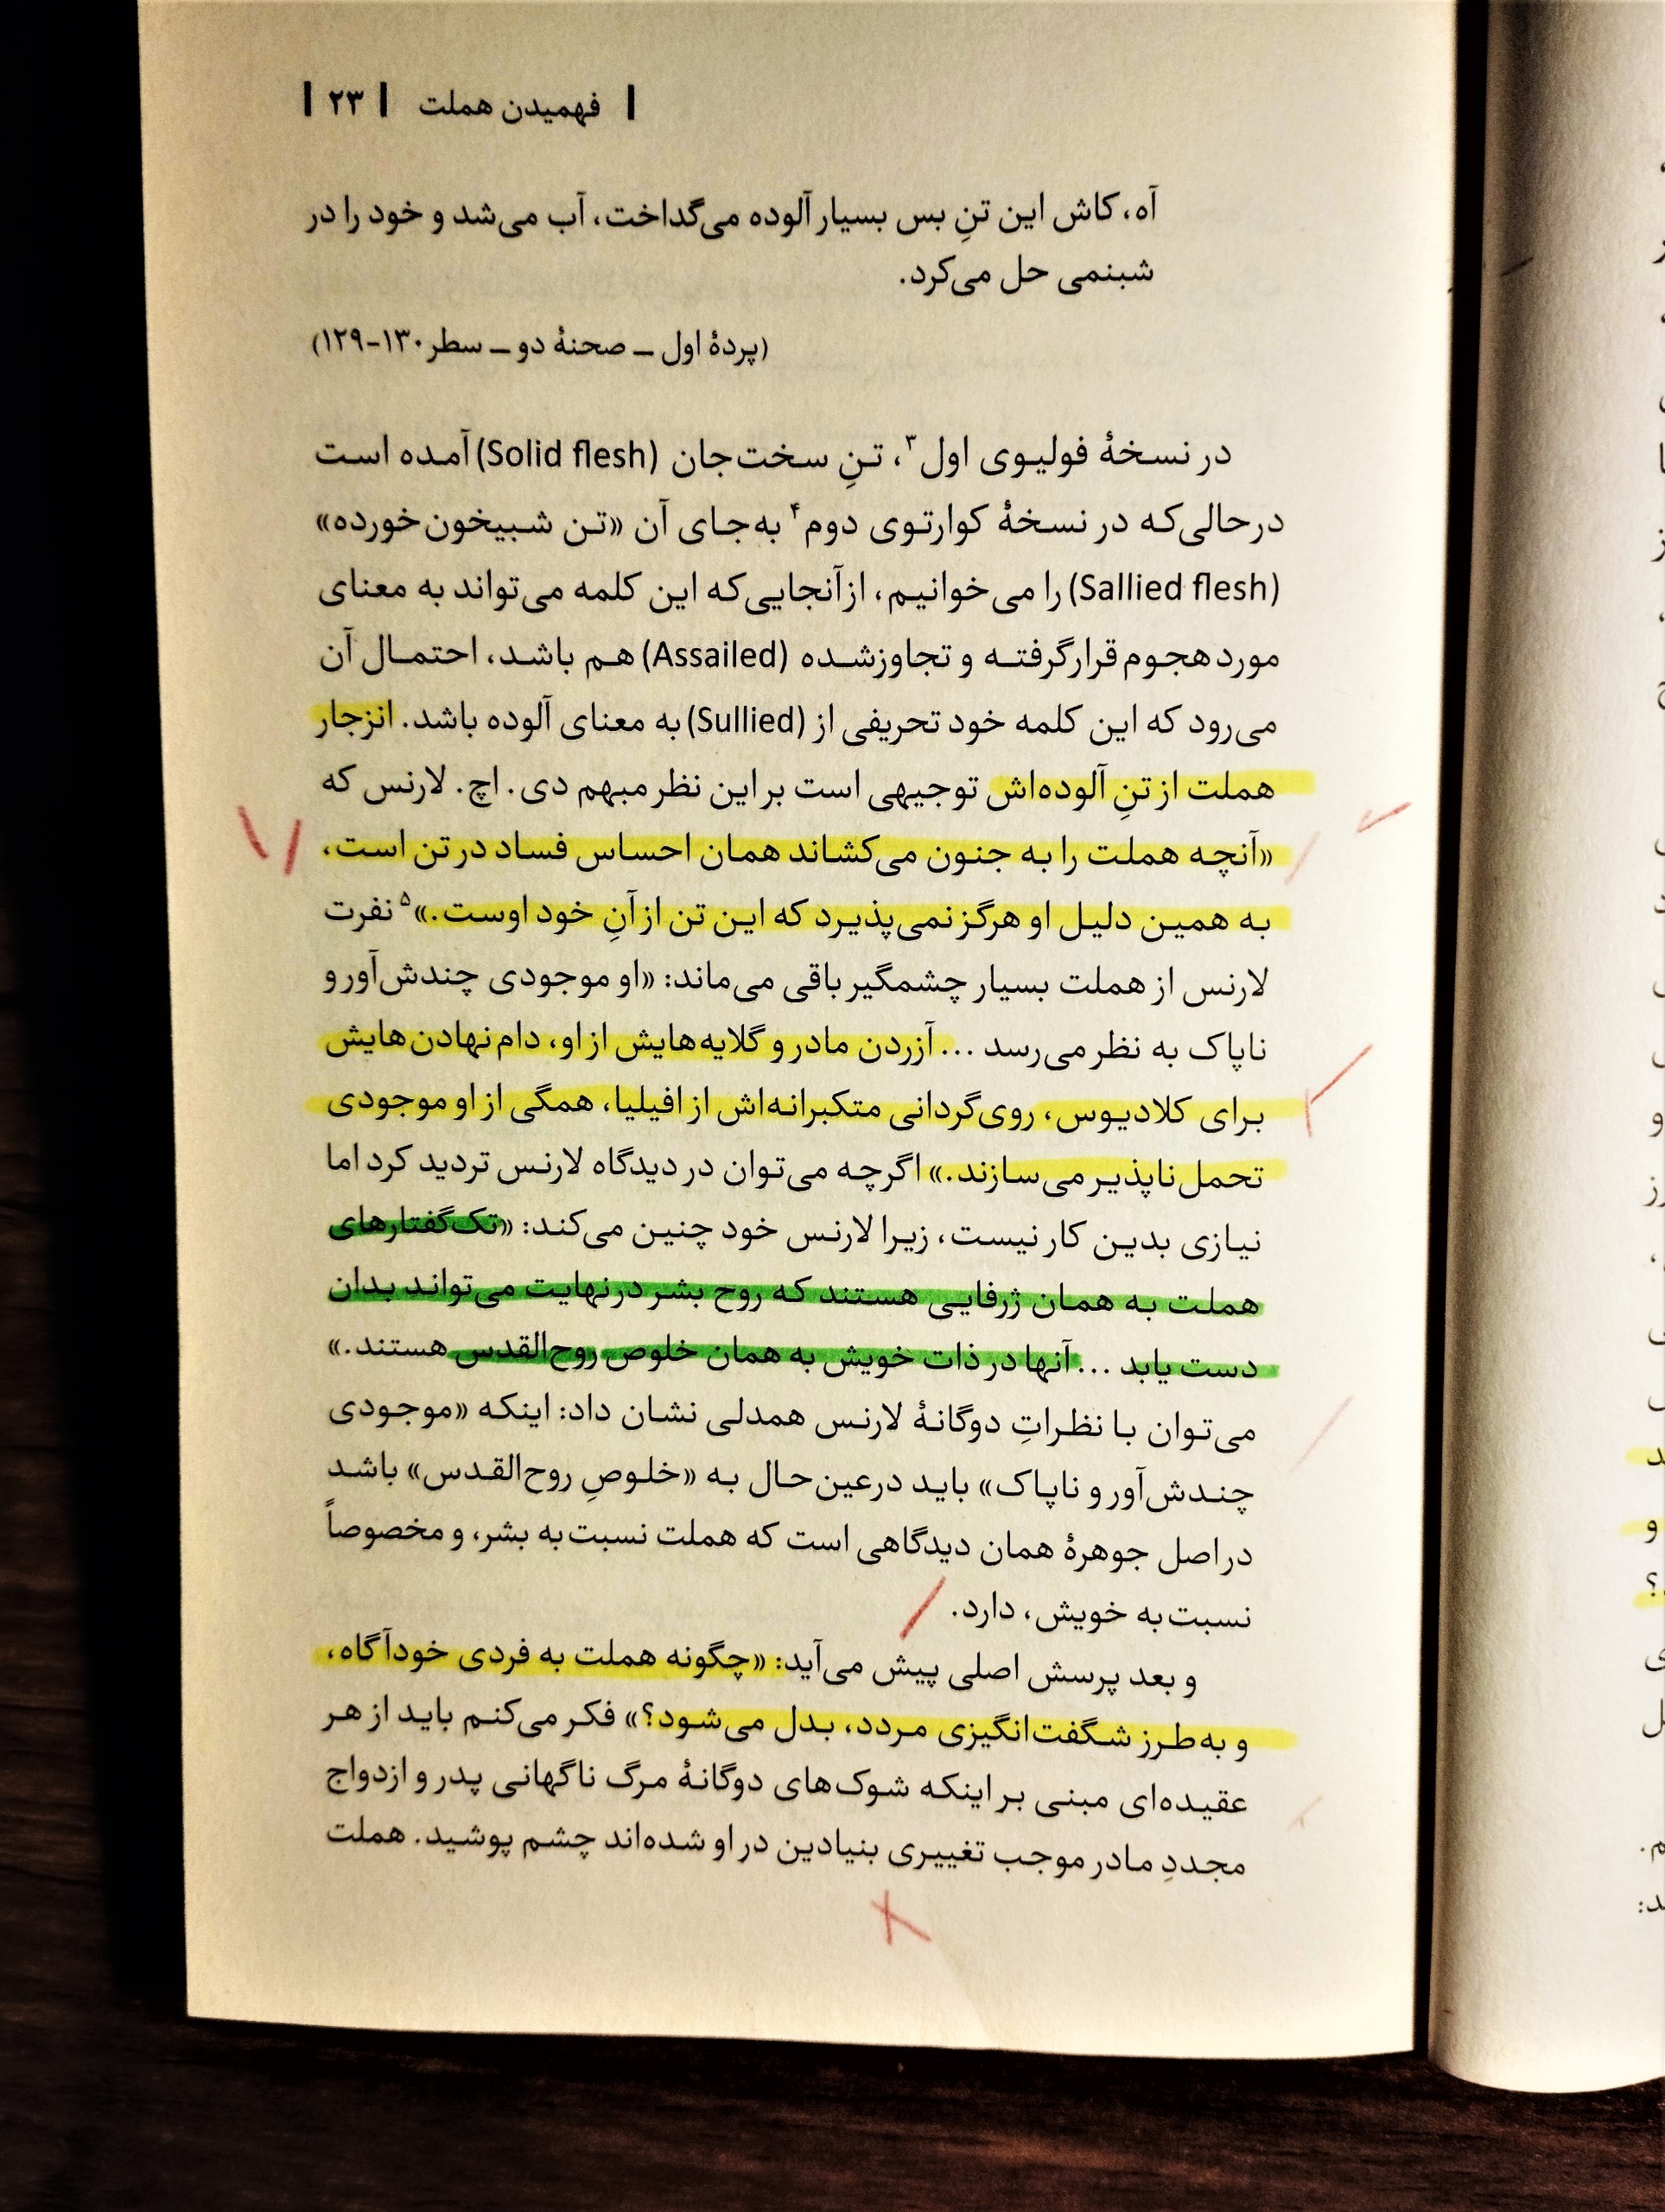 فهمیدن هملت | ۲۳ |
آه، کاش این تنِ بس بسیار آلوده می‌گداخت، آب می‌شد و خود را در
شبنمی حل می‌کرد.
(پردهٔ اول ــ صحنهٔ دو ــ سطر ۱۳۰-۱۲۹)
در نسخهٔ فولیوی اول۳، تنِ سخت‌جان (Solid flesh) آمده است
درحالی‌که در نسخهٔ کوارتوی دوم۴ به‌جای آن «تن شبیخون‌خورده»
(Sallied flesh) را می‌خوانیم، ازآنجایی‌که این کلمه می‌تواند به معنای
مورد هجوم قرارگرفته و تجاوزشده (Assailed) هم باشد، احتمال آن
می‌رود که این کلمه خود تحریفی از (Sullied) به معنای آلوده باشد. انزجار
هملت از تنِ آلوده‌اش توجیهی است بر این نظر مبهم دی. اچ. لارنس که
«آنچه هملت را به جنون می‌کشاند همان احساس فساد در تن است،
به همین دلیل او هرگز نمی‌پذیرد که این تن از آنِ خود اوست.»۵ نفرت
لارنس از هملت بسیار چشمگیر باقی می‌ماند: «او موجودی چندش‌آور و
ناپاک به نظر می‌رسد ... آزردن مادر و گلایه‌هایش از او، دام نهادن‌هایش
برای کلادیوس، روی‌گردانی متکبرانه‌اش از افیلیا، همگی از او موجودی
تحمل‌ناپذیر می‌سازند.» اگرچه می‌توان در دیدگاه لارنس تردید کرد اما
نیازی بدین کار نیست، زیرا لارنس خود چنین می‌کند: «تک‌گفتارهای
هملت به همان ژرفایی هستند که روح بشر درنهایت می‌تواند بدان
دست یابد ... آنها در ذات خویش به همان خلوص روح‌القدس هستند.»
می‌توان با نظراتِ دوگانهٔ لارنس همدلی نشان داد: اینکه «موجودی
چندش‌آور و ناپاک» باید درعین‌حال به «خلوصِ روح‌القدس» باشد
در اصل جوهرهٔ همان دیدگاهی است که هملت نسبت به بشر، و مخصوصاً
نسبت به خویش، دارد.
و بعد پرسش اصلی پیش می‌آید: «چگونه هملت به فردی خودآگاه،
و به‌طرز شگفت‌انگیزی مردد، بدل می‌شود؟» فکر می‌کنم باید از هر
عقیده‌ای مبنی بر اینکه شوک‌های دوگانهٔ مرگ ناگهانی پدر و ازدواج
مجددِ مادر موجب تغییری بنیادین در او شده‌اند چشم پوشید. هملت